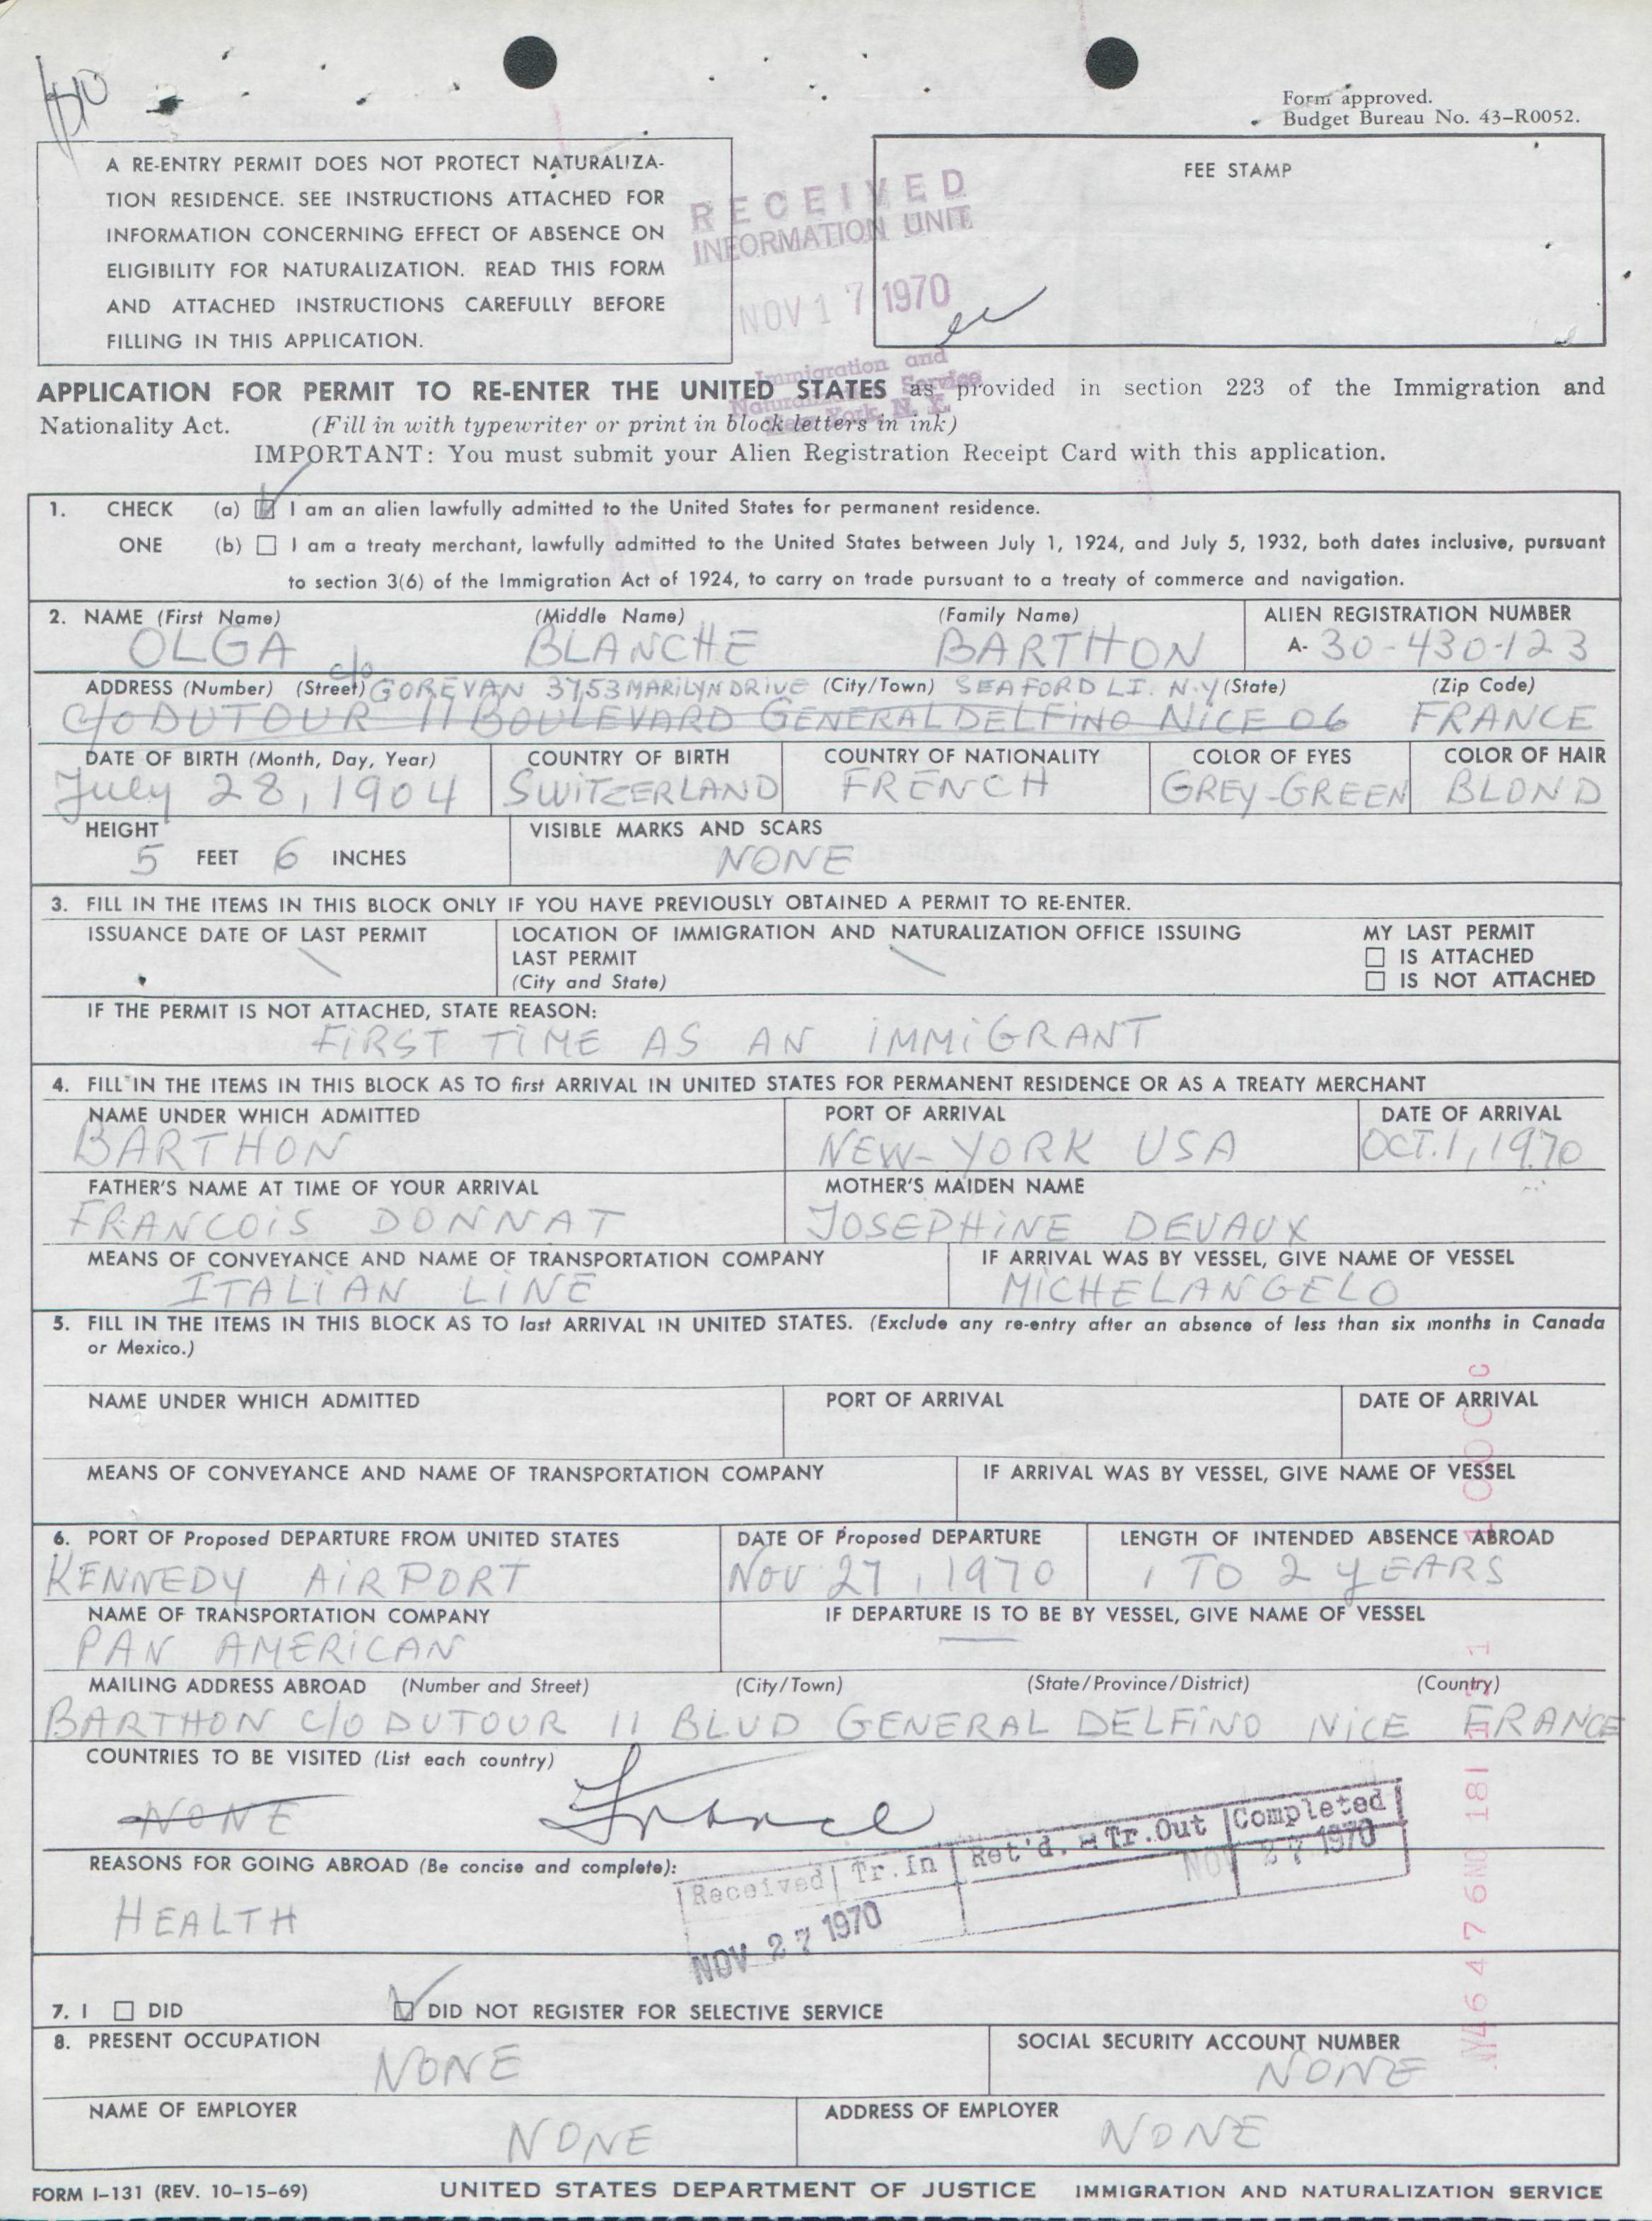 Form approved.
Budget Bureau No. 43-R0052.
A RE-ENTRY PERMIT DOES NOT PROTECT NATURALIZA-
TION RESIDENCE. SEE INSTRUCTIONS ATTACHED FOR
INFORMATION CONCERNING EFFECT OF ABSENCE ON
ELIGIBILITY FOR NATURALIZATION. READ THIS FORM
AND ATTACHED INSTRUCTIONS CAREFULLY BEFORE
FILLING IN THIS APPLICATION.
RECEIVED
INFORMATION UNIT
NOV 17 1970
Immigration and
Naturalization Service
New York, N. Y.
FEE STAMP
APPLICATION FOR PERMIT TO RE-ENTER THE UNITED STATES as provided in section 223 of the Immigration and
Nationality Act. (Fill in with typewriter or print in block letters in ink)
IMPORTANT: You must submit your Alien Registration Receipt Card with this application.
1. CHECK (a) I am an alien lawfully admitted to the United States for permanent residence.
ONE (b) I am a treaty merchant, lawfully admitted to the United States between July 1, 1924, and July 5, 1932, both dates inclusive, pursuant
to section 3(6) of the Immigration Act of 1924, to carry on trade pursuant to a treaty of commerce and navigation.
2. NAME (First Name) (Middle Name) (Family Name) ALIEN REGISTRATION NUMBER
OLGA BLANCHE BARTHON A- 30-430-123
ADDRESS (Number) (Street) c/o GOREVAN 3753 MARILYN DRIVE (City/Town) SEAFORD L.I. N.Y (State) (Zip Code)
C/O DUTOUR 11 BOULEVARD GENERAL DELFINO NICE 06 FRANCE
DATE OF BIRTH (Month, Day, Year) COUNTRY OF BIRTH COUNTRY OF NATIONALITY COLOR OF EYES COLOR OF HAIR
July 28, 1904 SWITZERLAND FRENCH GREY-GREEN BLOND
HEIGHT VISIBLE MARKS AND SCARS
5 FEET 6 INCHES NONE
3. FILL IN THE ITEMS IN THIS BLOCK ONLY IF YOU HAVE PREVIOUSLY OBTAINED A PERMIT TO RE-ENTER.
ISSUANCE DATE OF LAST PERMIT LOCATION OF IMMIGRATION AND NATURALIZATION OFFICE ISSUING MY LAST PERMIT
LAST PERMIT IS ATTACHED
(City and State) IS NOT ATTACHED
IF THE PERMIT IS NOT ATTACHED, STATE REASON:
FIRST TIME AS AN IMMIGRANT
4. FILL IN THE ITEMS IN THIS BLOCK AS TO first ARRIVAL IN UNITED STATES FOR PERMANENT RESIDENCE OR AS A TREATY MERCHANT
NAME UNDER WHICH ADMITTED PORT OF ARRIVAL DATE OF ARRIVAL
BARTHON NEW-YORK USA OCT. 1, 1970
FATHER'S NAME AT TIME OF YOUR ARRIVAL MOTHER'S MAIDEN NAME
FRANCOIS DONNAT JOSEPHINE DEVAUX
MEANS OF CONVEYANCE AND NAME OF TRANSPORTATION COMPANY IF ARRIVAL WAS BY VESSEL, GIVE NAME OF VESSEL
ITALIAN LINE MICHELANGELO
5. FILL IN THE ITEMS IN THIS BLOCK AS TO last ARRIVAL IN UNITED STATES. (Exclude any re-entry after an absence of less than six months in Canada
or Mexico.)
NAME UNDER WHICH ADMITTED PORT OF ARRIVAL DATE OF ARRIVAL
MEANS OF CONVEYANCE AND NAME OF TRANSPORTATION COMPANY IF ARRIVAL WAS BY VESSEL, GIVE NAME OF VESSEL
6. PORT OF Proposed DEPARTURE FROM UNITED STATES DATE OF Proposed DEPARTURE LENGTH OF INTENDED ABSENCE ABROAD
KENNEDY AIRPORT NOV 27, 1970 1 TO 2 YEARS
NAME OF TRANSPORTATION COMPANY IF DEPARTURE IS TO BE BY VESSEL, GIVE NAME OF VESSEL
PAN AMERICAN
MAILING ADDRESS ABROAD (Number and Street) (City/Town) (State/Province/District) (Country)
BARTHON C/O DUTOUR 11 BLVD GENERAL DELFINO NICE FRANCE
COUNTRIES TO BE VISITED (List each country)
NONE France
REASONS FOR GOING ABROAD (Be concise and complete):
HEALTH
Received Tr.In Ret'd. Tr.Out Completed
NOV 27 1970 NOV 27 1970
7. I DID DID NOT REGISTER FOR SELECTIVE SERVICE
8. PRESENT OCCUPATION SOCIAL SECURITY ACCOUNT NUMBER
NONE NONE
NAME OF EMPLOYER ADDRESS OF EMPLOYER
NONE NONE
FORM I-131 (REV. 10-15-69) UNITED STATES DEPARTMENT OF JUSTICE IMMIGRATION AND NATURALIZATION SERVICE